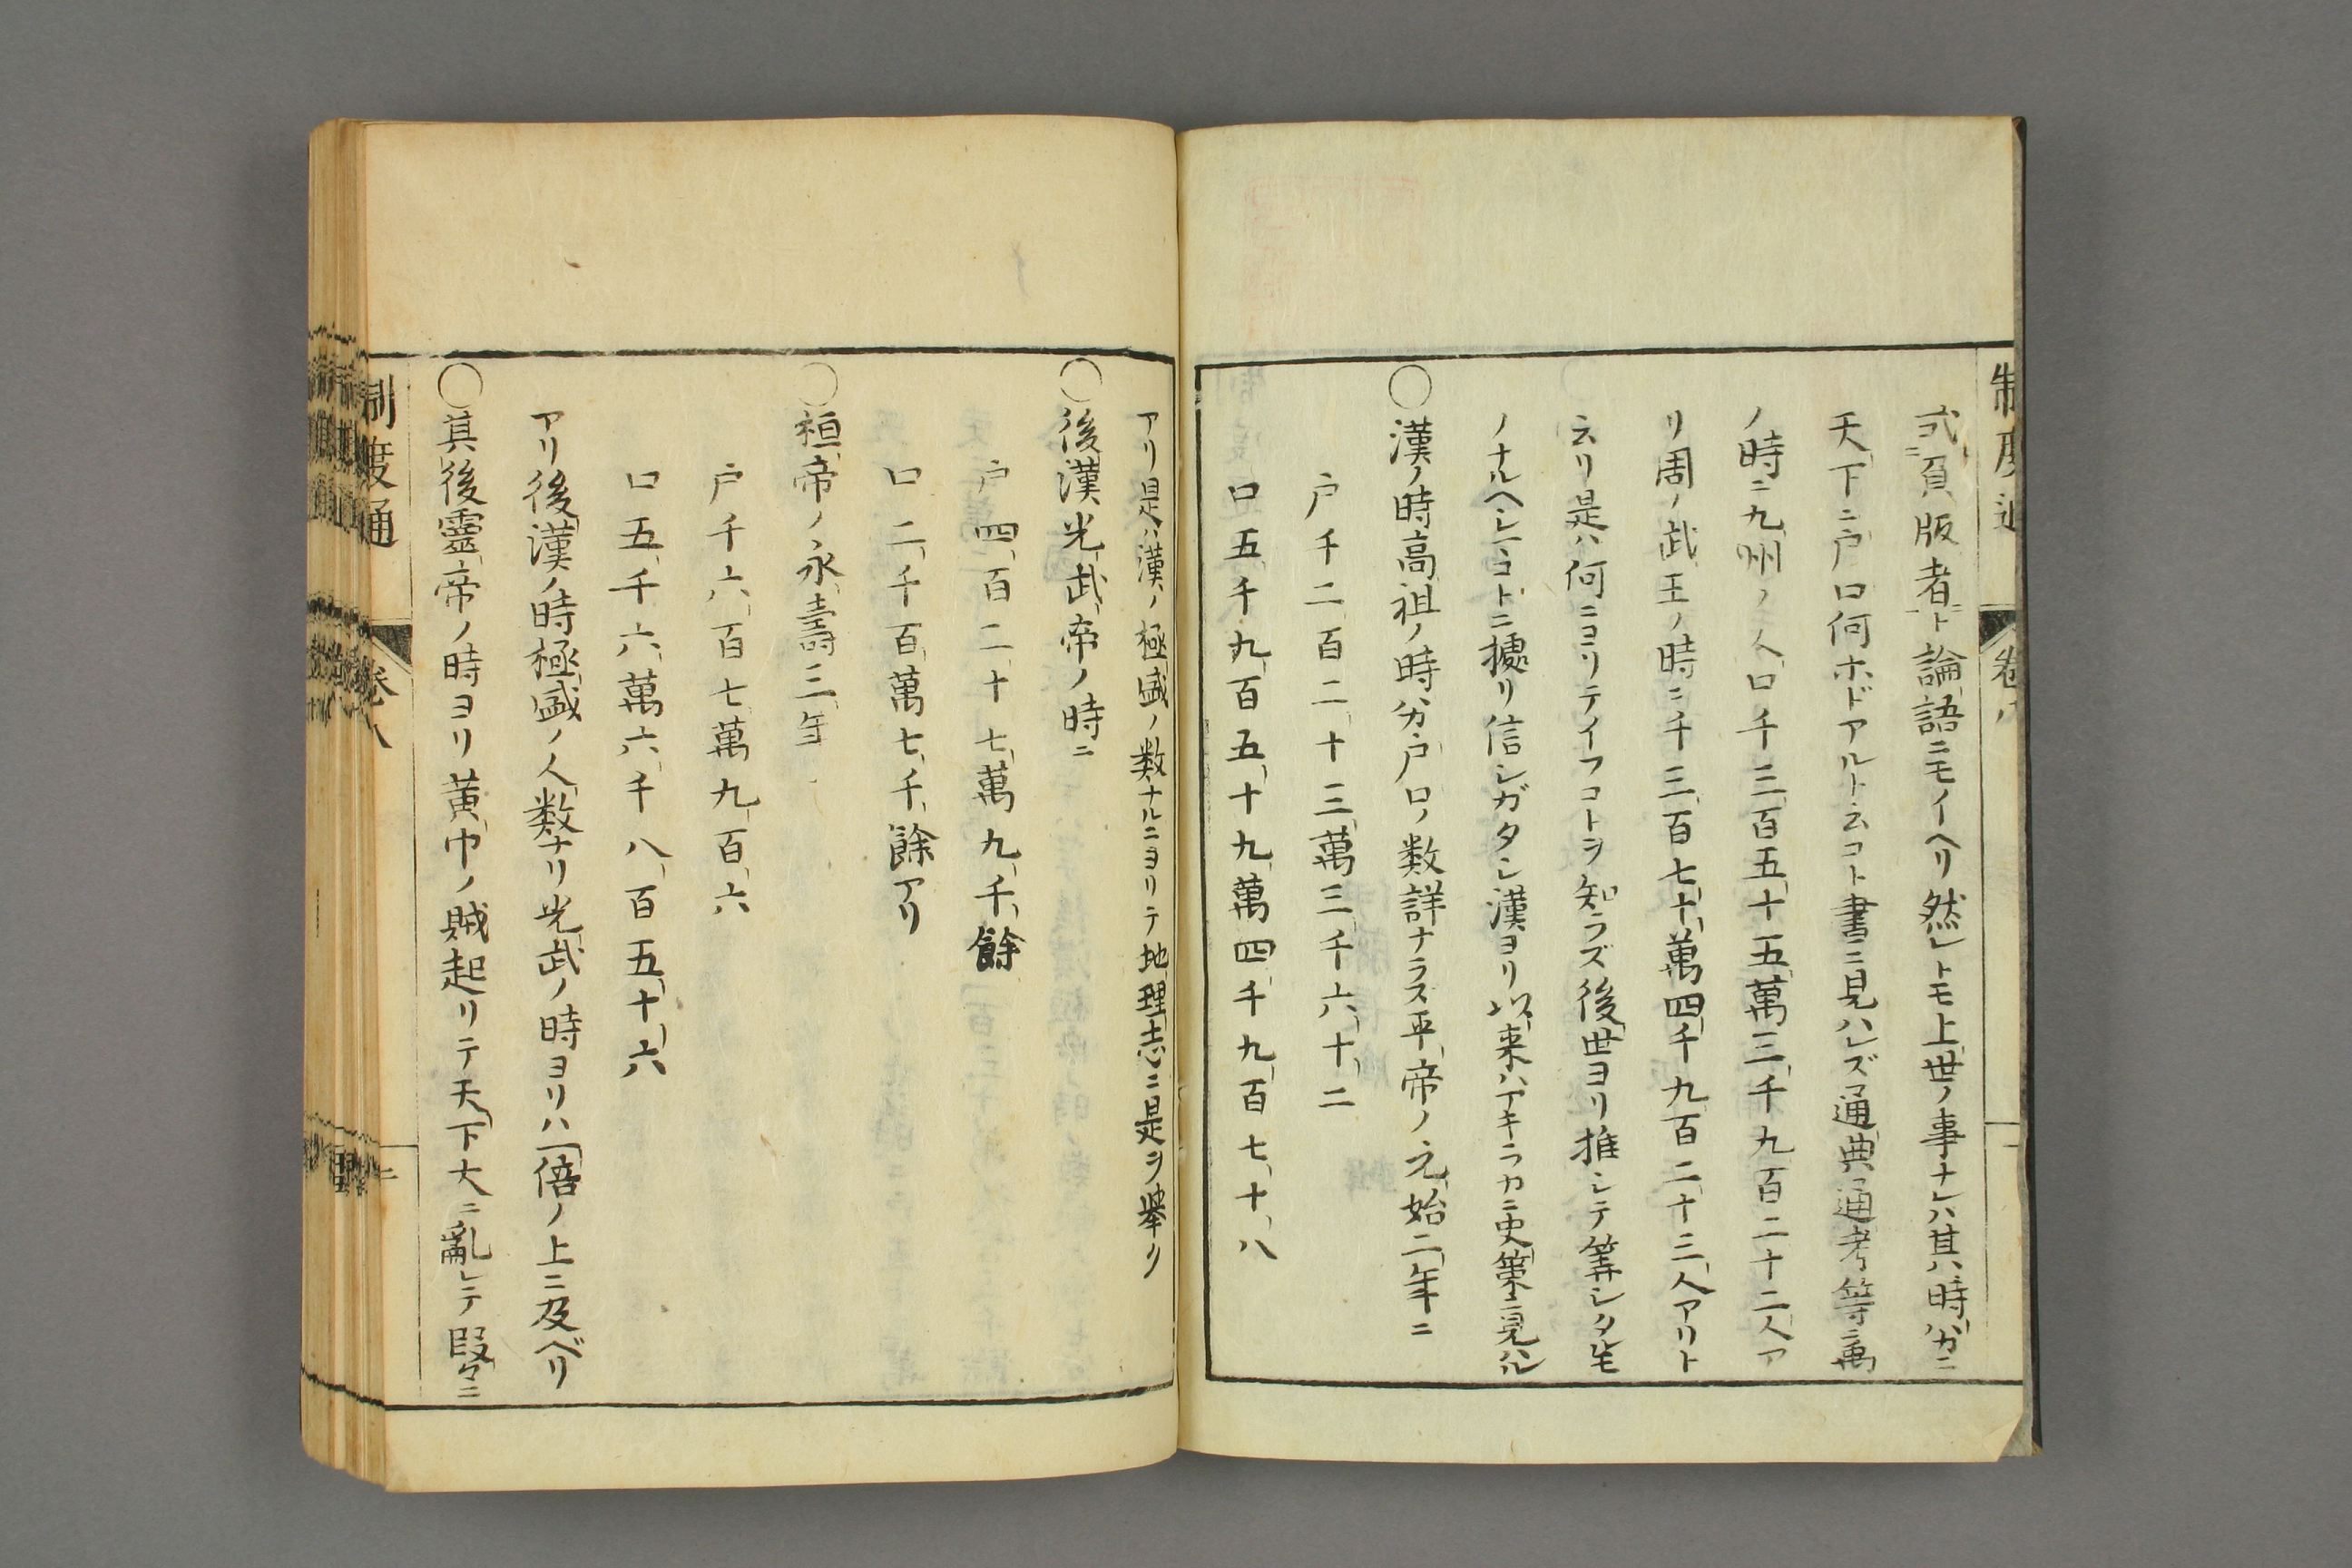 制度通 卷八
式負版者ト論語ニモイヘリ然レトモ上世ノ事ナレハ其時分ニ
天下ニ戸口何ホドアルト云コト書ニ見ハレズ通典通考等ニ禹
ノ時ニ九州ノ人口千三百五十五萬三千九百二十二人ア
リ周ノ武王ノ時ニ千三百七十萬四千九百二十三人アリト
云リ是ハ何ニヨリテイフコトヲ知ラズ後世ヨリ推シテ筭シタモ
ノナルヘシコトニ據リ信シガタシ漢ヨリ以来ハアキラカニ史策ニ見ハル
〇漢ノ時高祖ノ時分戸口ノ数詳ナラス平帝ノ元始二年ニ
戸千二百二十三萬三千六十二
口五千九百五十九萬四千九百七十八
アリ是ハ漢ノ極盛ノ数ナルニヨリテ地理志ニ是ヲ挙リ
〇後漢光武帝ノ時ニ
戸四百二十七萬九千餘
口二千百萬七千餘アリ
〇桓帝ノ永壽三年
戸千六百七萬九百六
口五千六萬六千八百五十六
アリ後漢ノ時極盛ノ人数ナリ光武ノ時ヨリハ一倍ノ上ニ及ベリ
〇其後靈帝ノ時ヨリ黄巾ノ賊起リテ天下大ニ亂レテ段々ニ
制度通 卷八 二